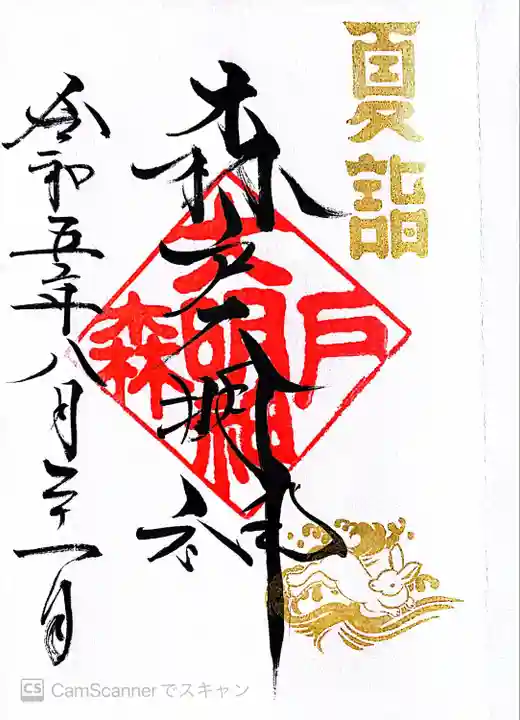 夏詣
森戸大明神
森戸大明神
令和五年八月十一日
CS CamScannerでスキャン